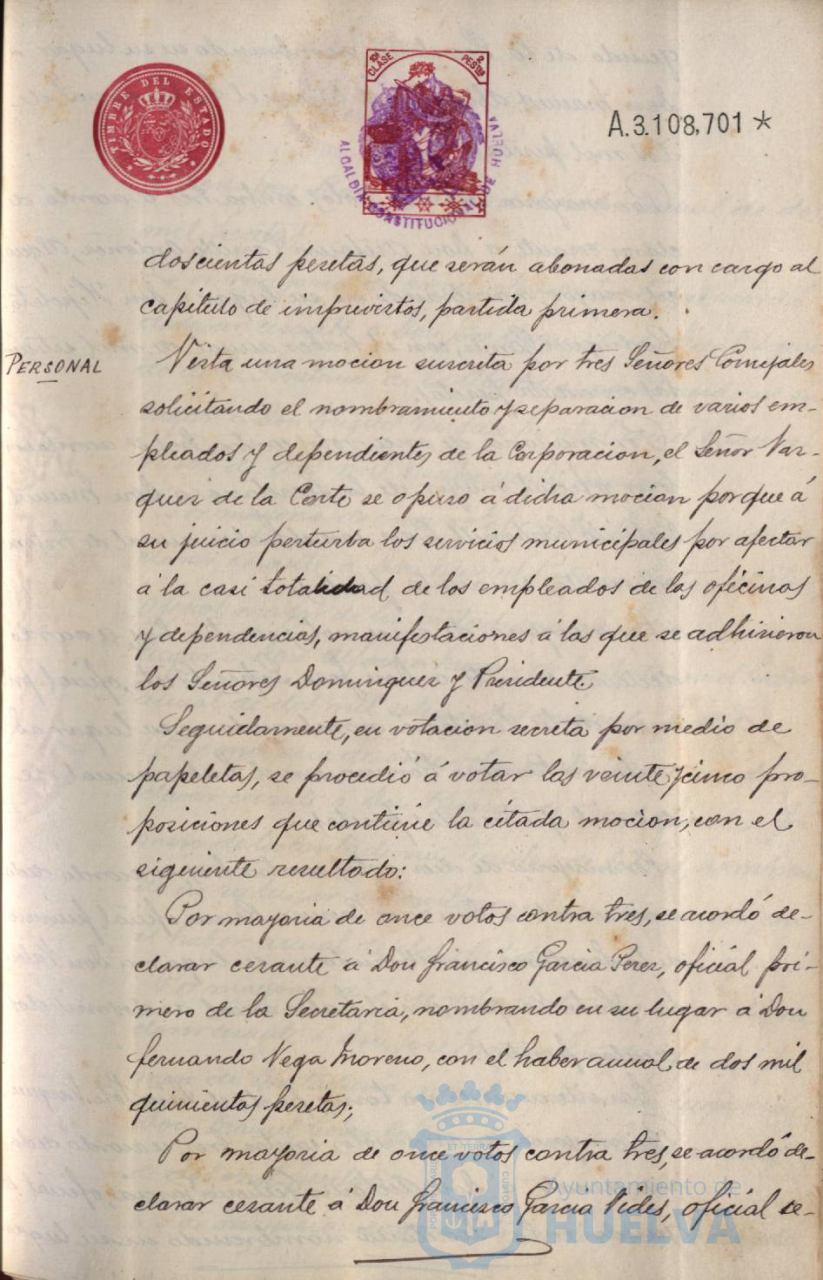 TIMBRE DEL ESTADO
10ª CLASE
2 PESTAS
ALCALDIA CONSTITUCIONAL DE HUELVA
A.3.108,701 *
doscientas pesetas, que serán abonadas con cargo al
capítulo de imprevistos, partida primera.
PERSONAL
Vista una mocion suscrita por tres Señores Concejales
solicitando el nombramiento y separacion de varios em-
pleados y dependientes de la Corporacion, el Señor Vaz-
quez de la Corte se opuso á dicha mocion porque á
su juicio perturba los servicios municipales por afectar
á la casi totalidad de los empleados de las oficinas
y dependencias, manifestaciones á las que se adhirieron
los Señores Dominguez y Presidente
Seguidamente, en votacion secreta por medio de
papeletas, se procedió á votar las veinte y cinco pro-
posiciones que contiene la citada mocion, con el
siguiente resultado:
Por mayoria de once votos contra tres, se acordó de-
clarar cesante á Don Francisco Garcia Perez, oficial pri-
mero de la Secretaria, nombrando en su lugar á Don
Fernando Vega Moreno, con el haber anual de dos mil
quinientas pesetas;
Por mayoria de once votos contra tres, se acordó de-
clarar cesante á Don Francisco Garcia Vides, oficial se-
Ayuntamiento de
HUELVA